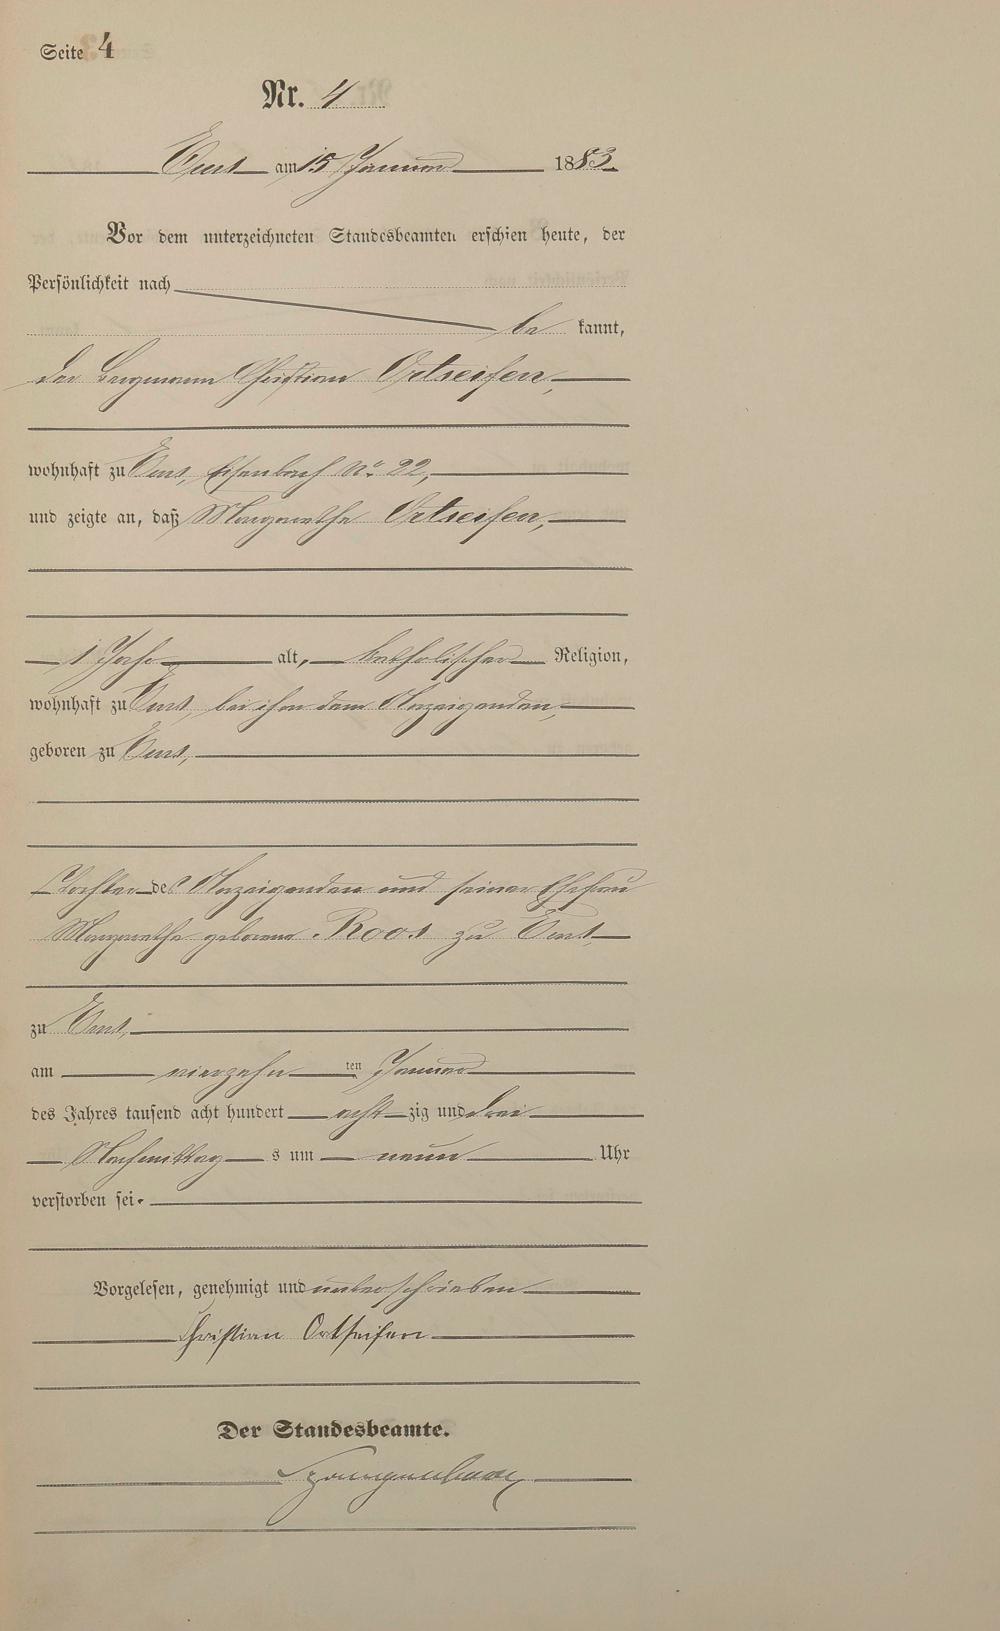 Seite 4
Nr. 4
Ems am 15 Januar 1883.
Vor dem unterzeichneten Standesbeamten erschien heute, der
Persönlichkeit nach
be kannt,
der Bergmann Christian Ortseifen,
wohnhaft zu Ems, Eisenbach No 22,
und zeigte an, daß Margarethe Ortseifen,
1 Jahr alt, katholischer Religion,
wohnhaft zu Ems, bei ihm dem Anzeigenden,
geboren zu Ems,
Tochter des Anzeigenden und seiner Ehefrau
Margarethe geborene Roos zu Ems,
zu Ems,
am vierzehn ten Januar
des Jahres tausend acht hundert acht zig und drei
Nachmittag s um neun Uhr
verstorben sei.
Vorgelesen, genehmigt und unterschrieben
Christian Ortseifen
Der Standesbeamte.
Spangenberg